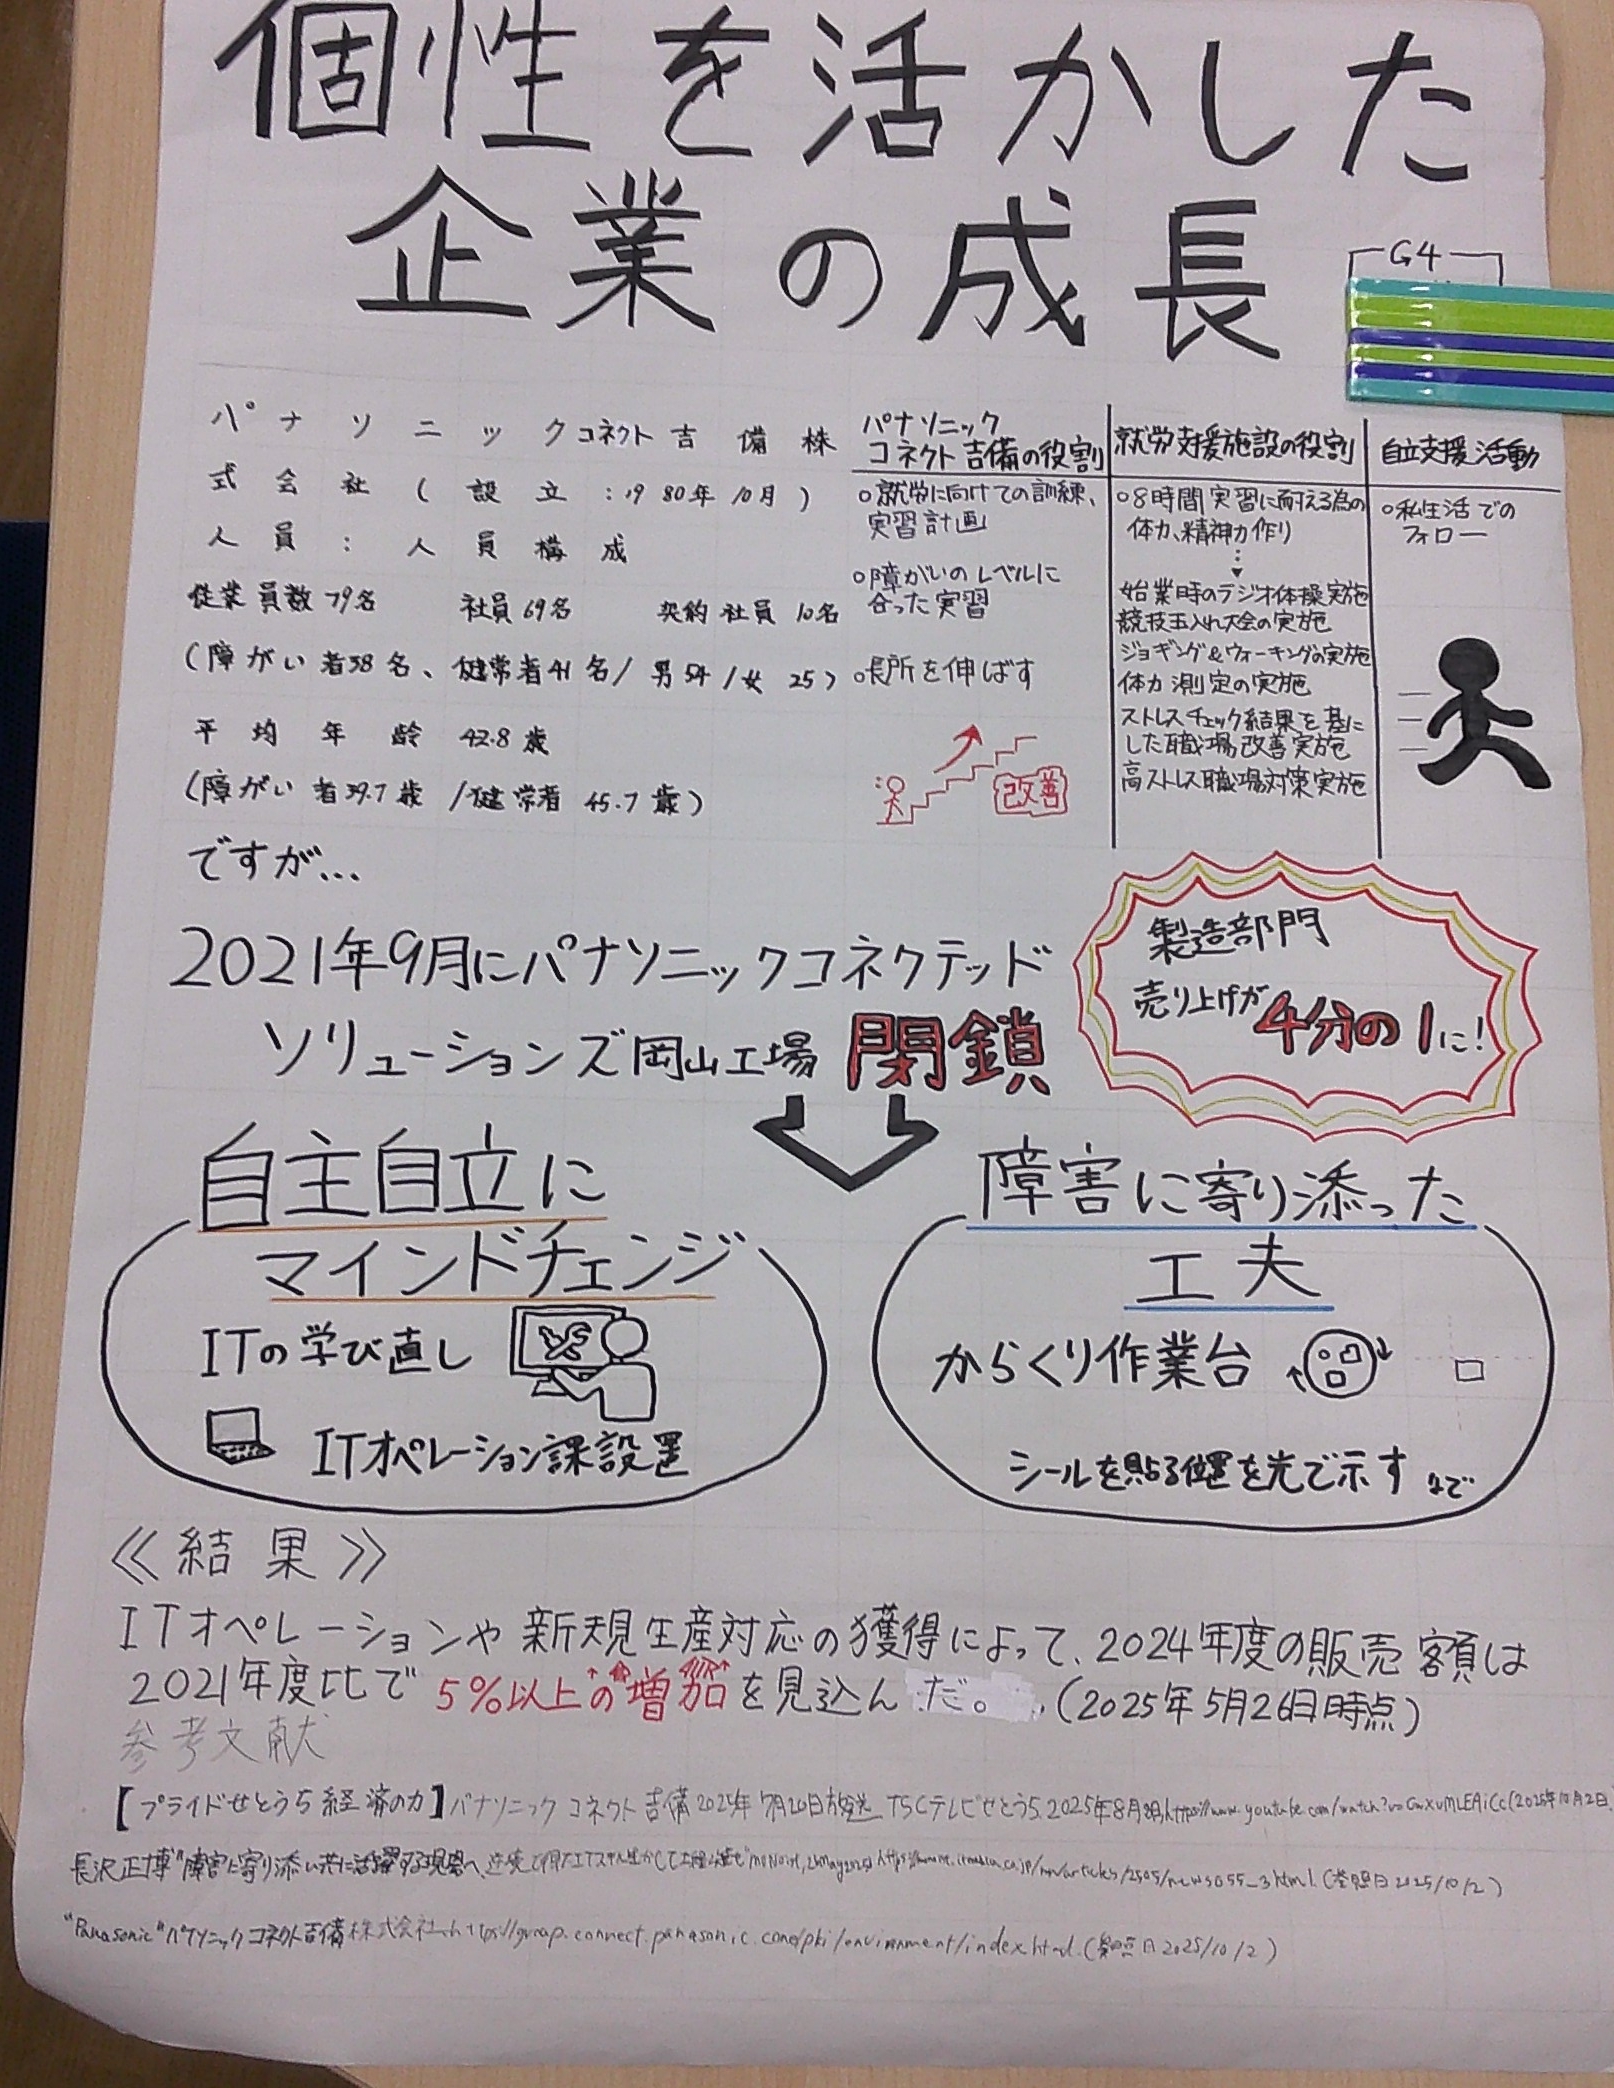 個性を活かした
企業の成長
G4
パナソニックコネクト吉備株
式会社(設立:1980年10月)
人員:人員構成
従業員数79名 社員69名 契約社員10名
(障がい者38名、健常者41名/男54/女25)
平均年齢 42.8歳
(障がい者39.7歳/健常者45.7歳)
パナソニック
コネクト吉備の役割
○就労に向けての訓練、
実習計画
○障がいのレベルに
合った実習
○長所を伸ばす
改善
就労支援施設の役割
○8時間実習に耐える為の
体力、精神力作り
始業時のラジオ体操実施
競技玉入れ大会の実施
ジョギング&ウォーキングの実施
体力測定の実施
ストレスチェック結果を基に
した職場改善実施
高ストレス職場対策実施
自立支援活動
○私生活での
フォロー
ですが...
2021年9月にパナソニックコネクテッド
ソリューションズ岡山工場 閉鎖
製造部門
売り上げが4分の1に!
自主自立に
マインドチェンジ
ITの学び直し
ITオペレーション課設置
障害に寄り添った
工夫
からくり作業台
シールを貼る位置を光で示す など
≪結果≫
ITオペレーションや新規生産対応の獲得によって、2024年度の販売額は
2021年度比で5%以上の増加を見込んだ。(2025年5月26日時点)
参考文献
【プライドせとうち経済の力】パナソニックコネクト吉備 2025年7月20日放送 TSCテレビせとうち、2025年8月
長沢正博"障害に寄り添い共に活躍する現場へ、 (参照日2025/10/2)
"Panasonic"パナソニックコネクト吉備株式会社 (参照日2025/10/2)